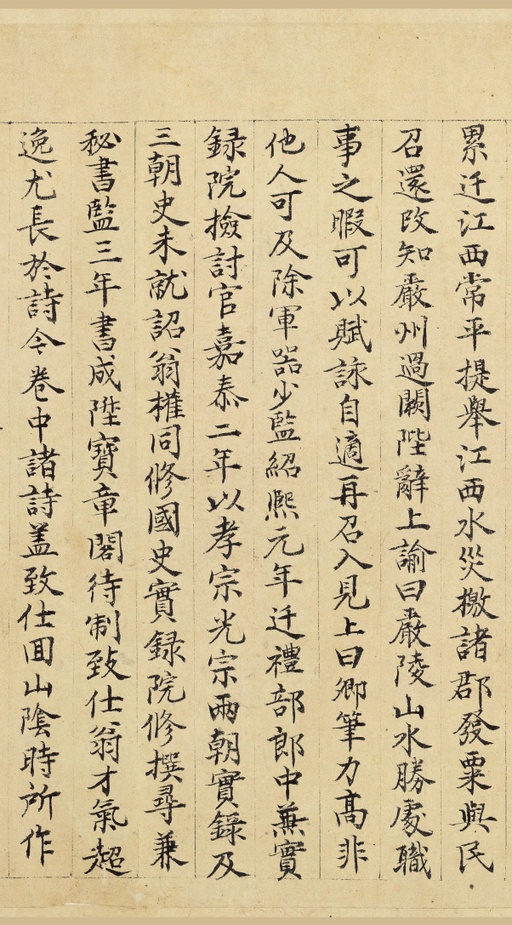 累迁江西常平提舉江西水災檄諸郡發粟與民
召還改知嚴州過闕陛辭上諭曰嚴陵山水勝處職
事之暇可以賦詠自適再召入見上曰卿筆力高非
他人可及除軍器少監紹熙元年迁禮部郎中兼實
録院撿討官嘉泰二年以孝宗光宗兩朝實錄及
三朝史未就詔翁權同修國史實録院修撰尋兼
秘書監三年書成陞寶章閣待制致仕翁才氣超
逸尤長於詩今卷中諸詩盖致仕囬山陰時所作